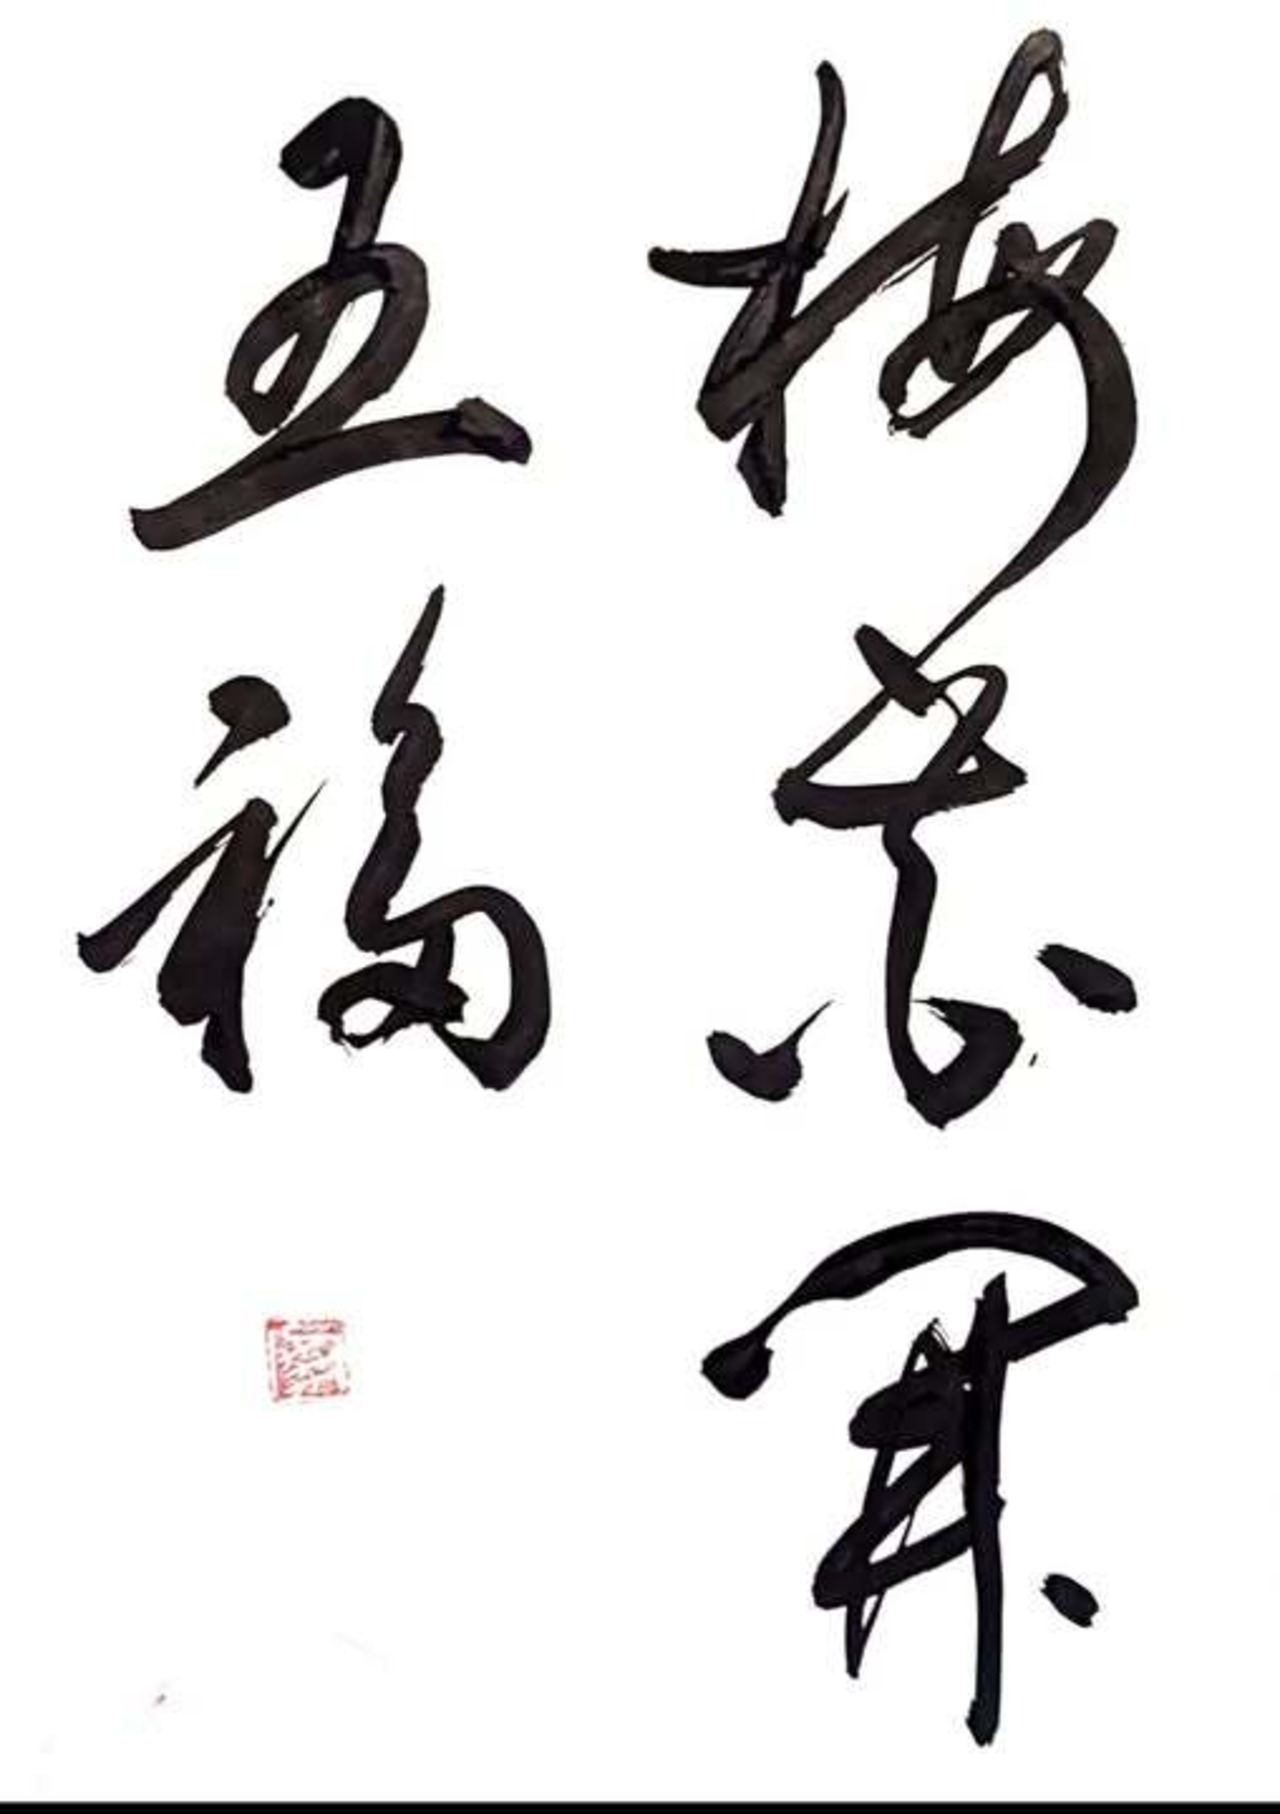 梅蕊開
五福